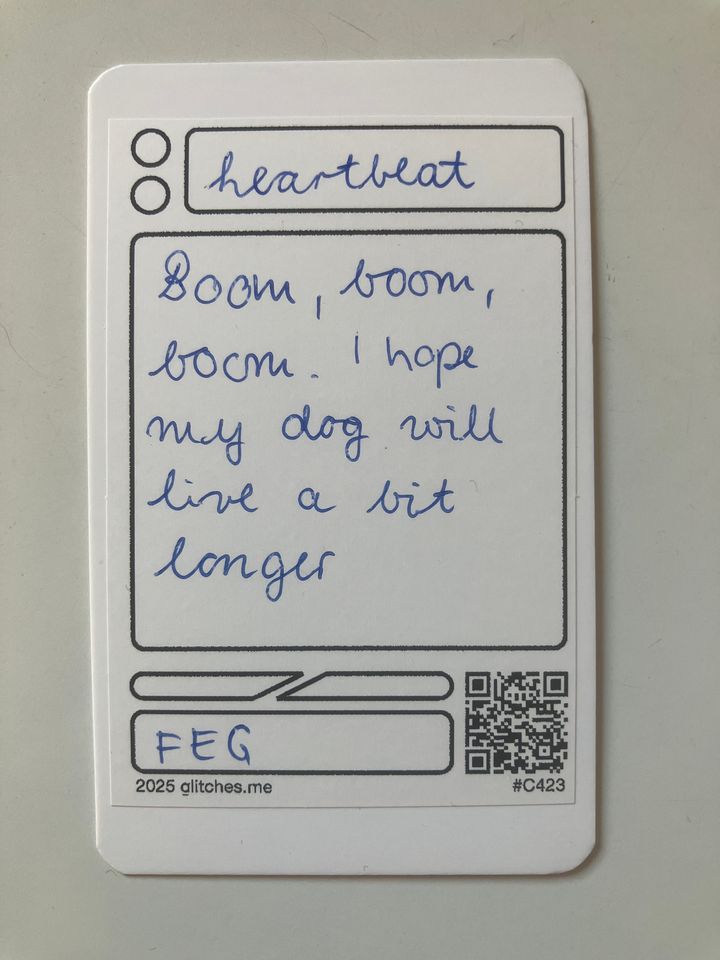 heartbeat
Boom, boom,
boom. I hope
my dog will
live a bit
longer
FEG
2025 glitches.me
#C423